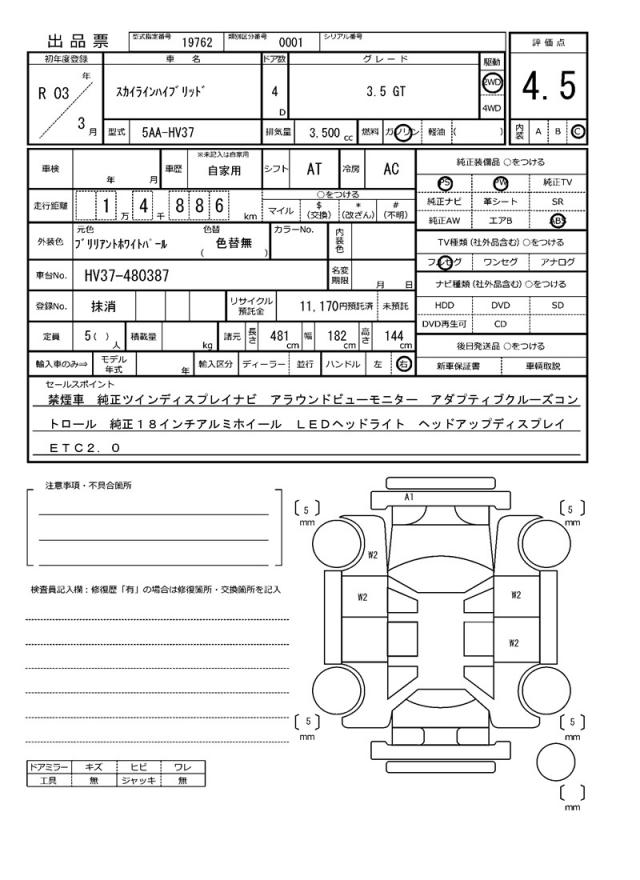 出品票 型式指定番号 19762 類別区分番号 0001 シリアル番号
初年度登録 車名 ドア数 グレード 駆動 評価点
R 03 年 3 月 スカイラインハイブリッド 4 D 3.5 GT 2WD 4WD 4.5
型式 5AA-HV37 排気量 3.500 cc 燃料 ガソリン 軽油 ( ) 内装 A B C
車検 年 月 車歴 ※未記入は自家用 自家用 シフト AT 冷房 AC 純正装備品 ○をつける
PS PW 純正TV
走行距離 1 万 4 千 8 8 6 km ○をつける 純正ナビ 革シート SR
マイル $ (交換) * (改ざん) # (不明) 純正AW エアB ABS
外装色 元色 ブリリアントホワイトパール 色替 ( 色替無 ) カラーNo. 内装色 TV種類(社外品含む)○をつける
フルセグ ワンセグ アナログ
車台No. HV37-480387 名変期限 月 日 ナビ種類(社外品含む)○をつける
登録No. 抹消 リサイクル預託金 11,170円預託済 未預託 HDD DVD SD
DVD再生可 CD
定員 5( ) 人 積載量 kg 諸元 長さ 481 cm 幅 182 cm 高さ 144 cm 後日発送品 ○をつける
輸入車のみ⇒ モデル年式 年 輸入区分 ディーラー 並行 ハンドル 左 右 新車保証書 車輌取説
セールスポイント
禁煙車 純正ツインディスプレイナビ アラウンドビューモニター アダプティブクルーズコン
トロール 純正18インチアルミホイール LEDヘッドライト ヘッドアップディスプレイ
ETC2.0
注意事項・不具合箇所
検査員記入欄:修復歴「有」の場合は修復箇所・交換箇所を記入
ドアミラー キズ ヒビ ワレ
工具 無 ジャッキ 無
A1
[ 5 ] mm [ 5 ] mm
W2
W2 W2
W2
[ 5 ] mm [ 5 ] mm
[ ] mm